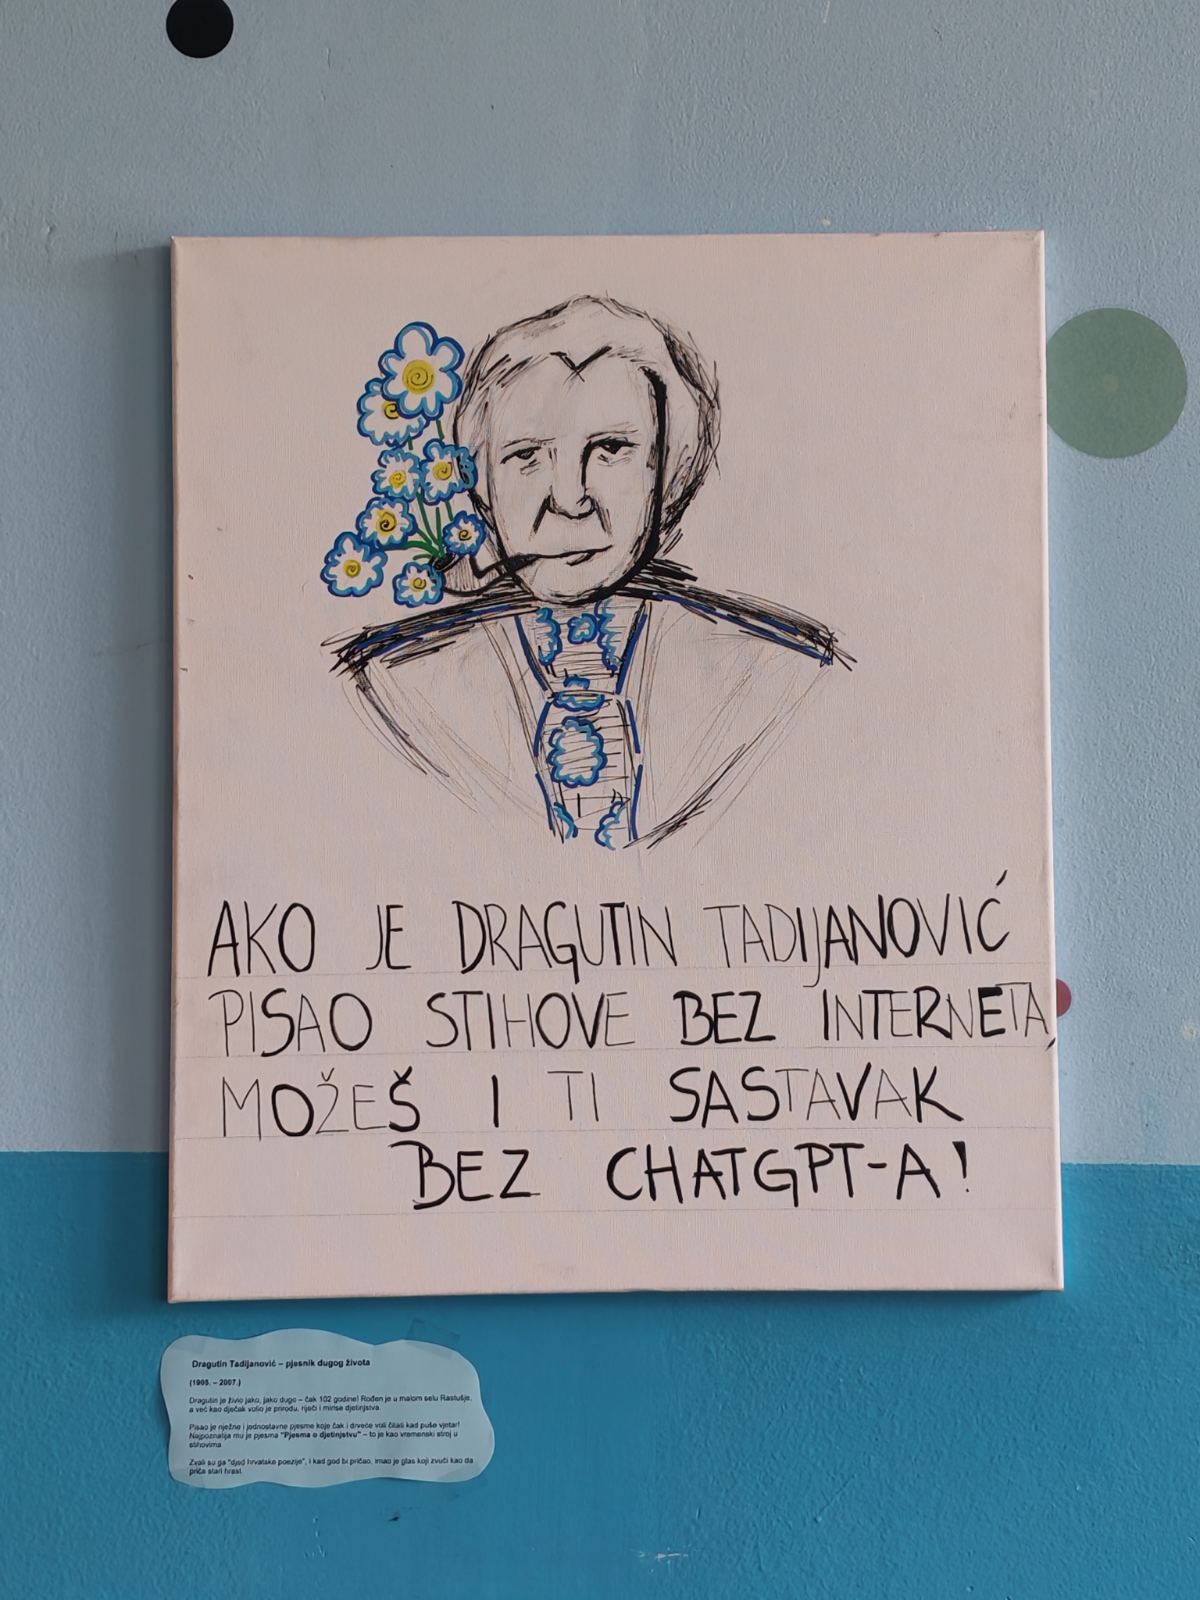 AKO JE DRAGUTIN TADIJANOVIĆ
PISAO STIHOVE BEZ INTERNETA,
MOŽEŠ I TI SASTAVAK
BEZ CHATGPT-A!
Dragutin Tadijanović – pjesnik dugog života
(1905. – 2007.)
Dragutin je živio jako, jako dugo – čak 102 godine! Rođen je u malom selu Rastušje,
a već kao dječak volio je prirodu, riječi i mirise djetinjstva.
Pisao je nježne i jednostavne pjesme koje čak i drveće voli čitati kad puše vjetar!
Najpoznatija mu je pjesma "Pjesma o djetinjstvu" – to je kao vremenski stroj u
stihovima.
Zvali su ga "djed hrvatske poezije", i kad god bi pričao, imao je glas koji zvuči kao da
priča stari hrast.